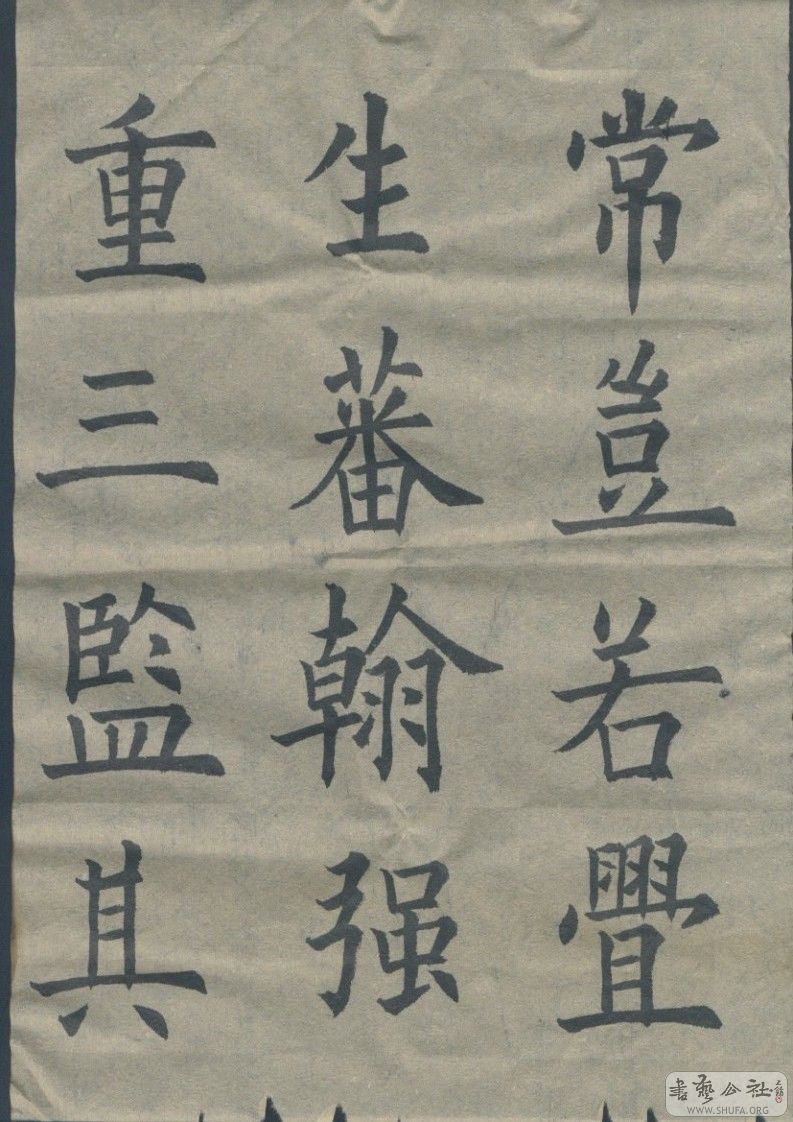 常豈若舋
生蕃翰强
重三監其
書藝公社
WWW.SHUFA.ORG